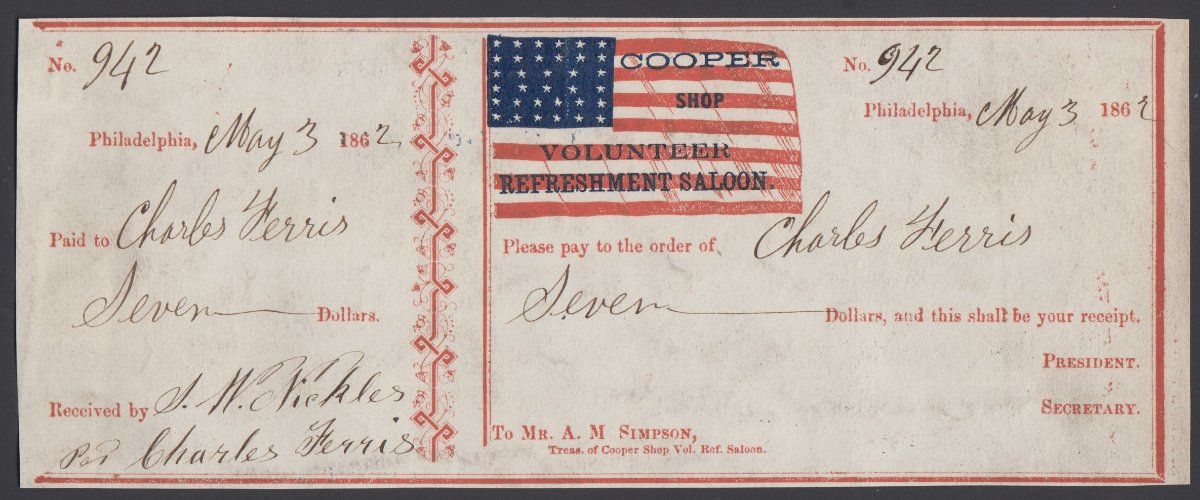 No. 942
Philadelphia, May 3 1862
Paid to Charles Ferris
Seven Dollars.
Received by S. W. Nickles
Per Charles Ferris
COOPER
SHOP
VOLUNTEER
REFRESHMENT SALOON.
No. 942
Philadelphia, May 3 1862
Please pay to the order of Charles Ferris
Seven Dollars, and this shall be your receipt.
PRESIDENT.
SECRETARY.
To MR. A. M SIMPSON,
Treas. of Cooper Shop Vol. Ref. Saloon.